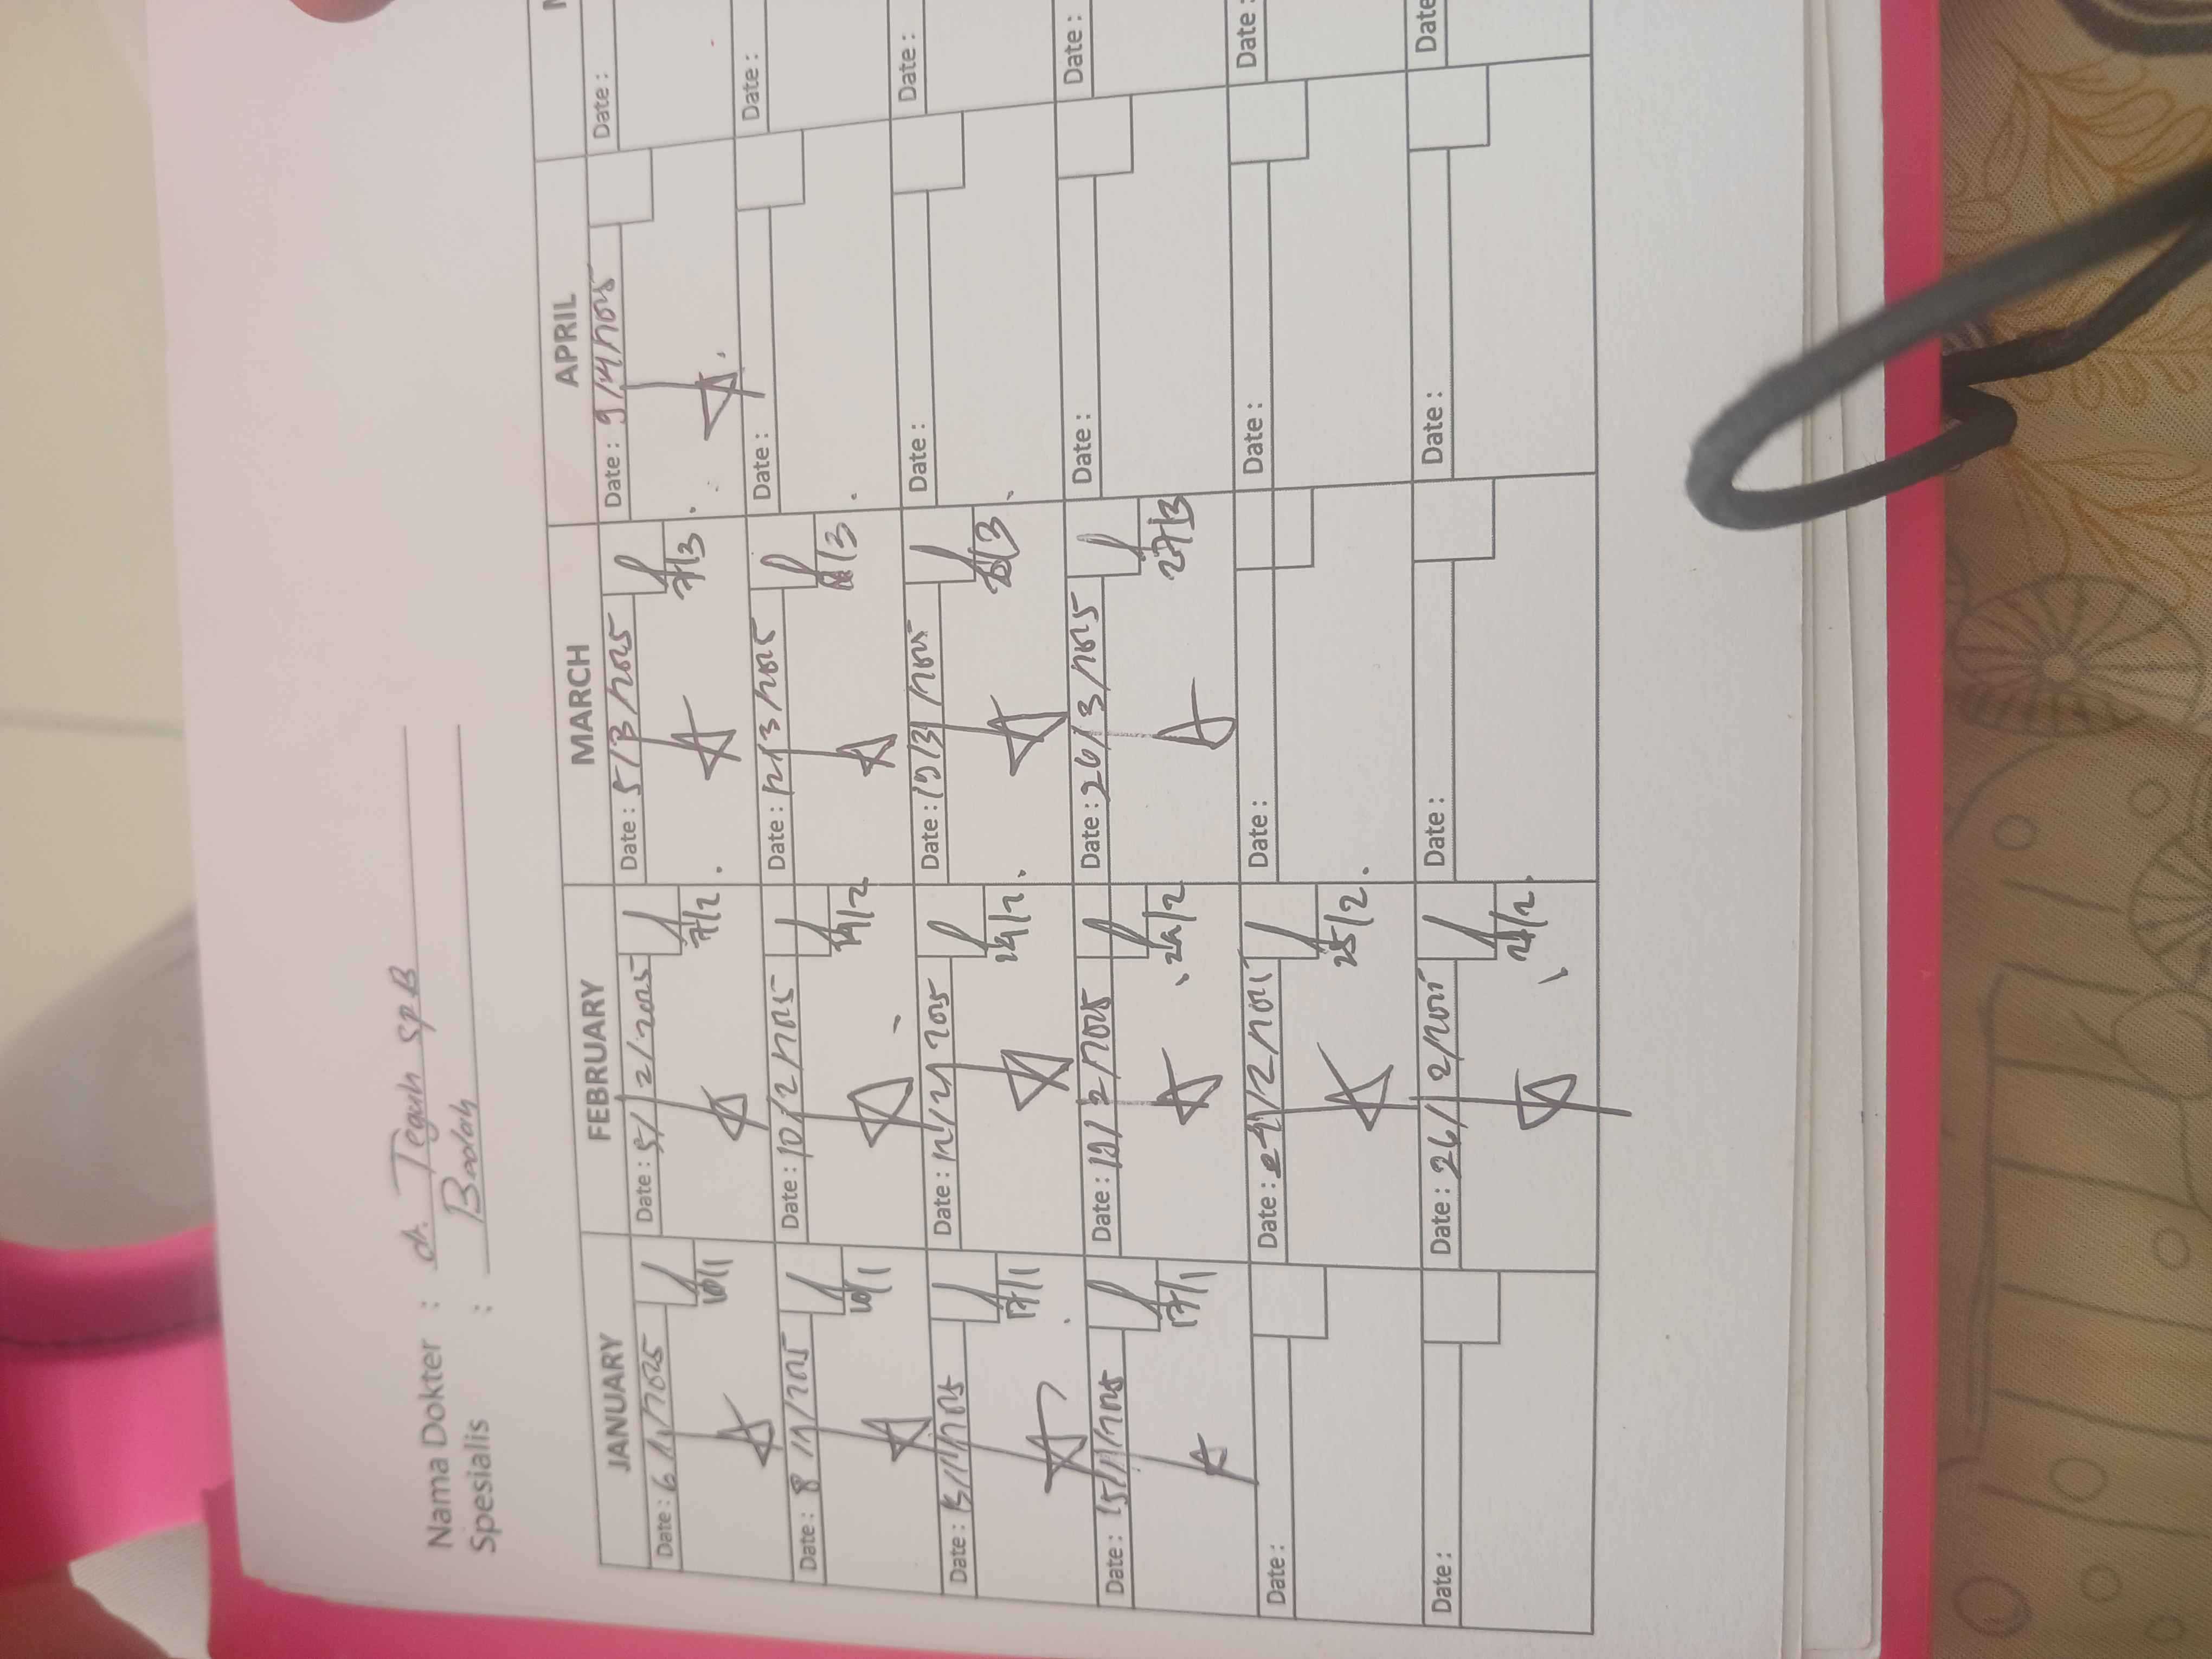 Nama Dokter : dr. Teguh SpB
Spesialis : Bedah
JANUARY FEBRUARY MARCH APRIL
Date : 6/1/2025 Date : 5/2/2025 Date : 5/3/2025 Date : 9/4/2025 Date :
10/1 7/2 7/3
Date : 8/1/2025 Date : 10/2/2025 Date : 12/3/2025 Date : Date :
10/1 14/2 /3
Date : 13/1/2025 Date : 12/2/2025 Date : 19/3/2025 Date : Date :
17/1 /2 /3
Date : 15/1/2025 Date : 19/2/2025 Date : 26/3/2025 Date : Date :
17/1 /2 27/3
Date : Date : 24/2/2025 Date : Date : Date :
25/2
Date : Date : 26/2/2025 Date : Date : Date
/2